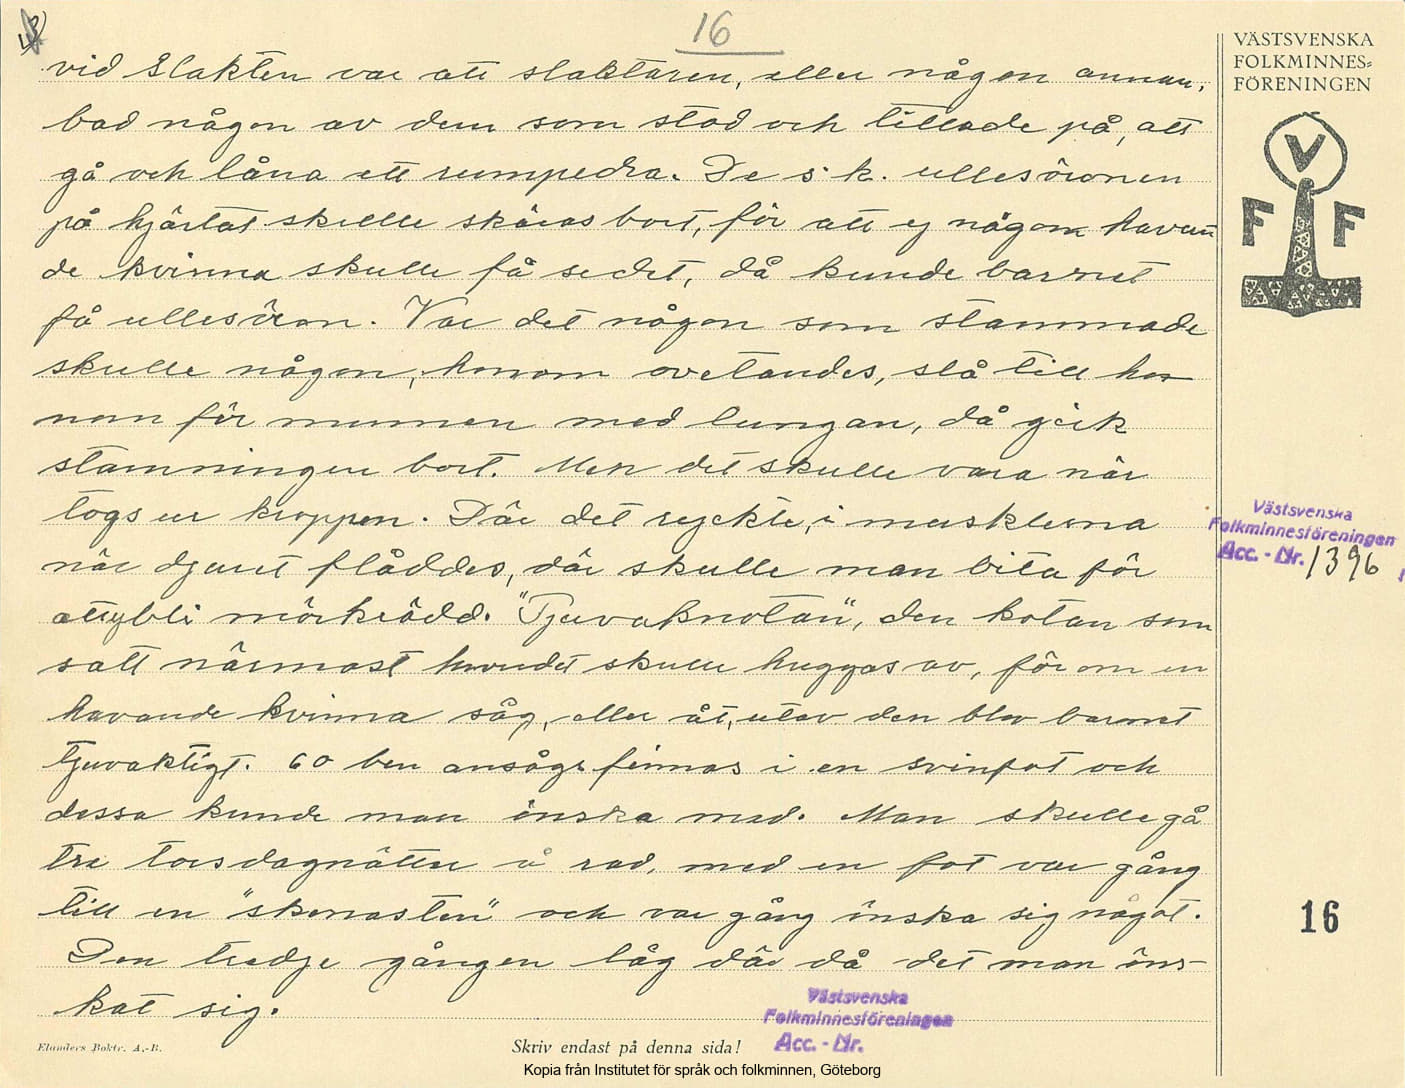 16
vid Slakten var att slaktaren, eller någon annan,
bad någon av dem som stod och tittade på, att
gå och låna ett rumpedra. De s.k. ullesöronen
på hjärtat skulle skäras bort, för att ej någon havan
de kvinna skulle få se det, då kunde barnet
få ullesöron. Var det någon som stammade
skulle någon, honom ovetandes, slå till ho
nom för munnen med lungan, då gick
stamningen bort. Men det skulle vara när
togs ur kroppen. Där det ryckte, i musklerna
när djuret flåddes, där skulle man bita för
att ej bli mörkrädd. "Tjuvaknotan", den kotan som
satt närmast huvudet skulle huggas av, för om en
havande kvinna såg, eller åt, utav den blev barnet
tjuvaktigt. 60 ben ansågs finnas i en svinfot och
dessa kunde man önska med. Man skulle gå
tre torsdagnätter å rad, med en fot var gång
till en "skenasten" och var gång önska sig något.
Den tredje gången låg där då det man öns-
kat sig.
VÄSTSVENSKA
FOLKMINNES=
FÖRENINGEN
V
F F
Västsvenska
Folkminnesföreningen
Acc. - Nr. 1396
16
Västsvenska
Folkminnesföreningen
Acc. - Nr.
Elanders Boktr. A.-B.
Skriv endast på denna sida!
Kopia från Institutet för språk och folkminnen, Göteborg